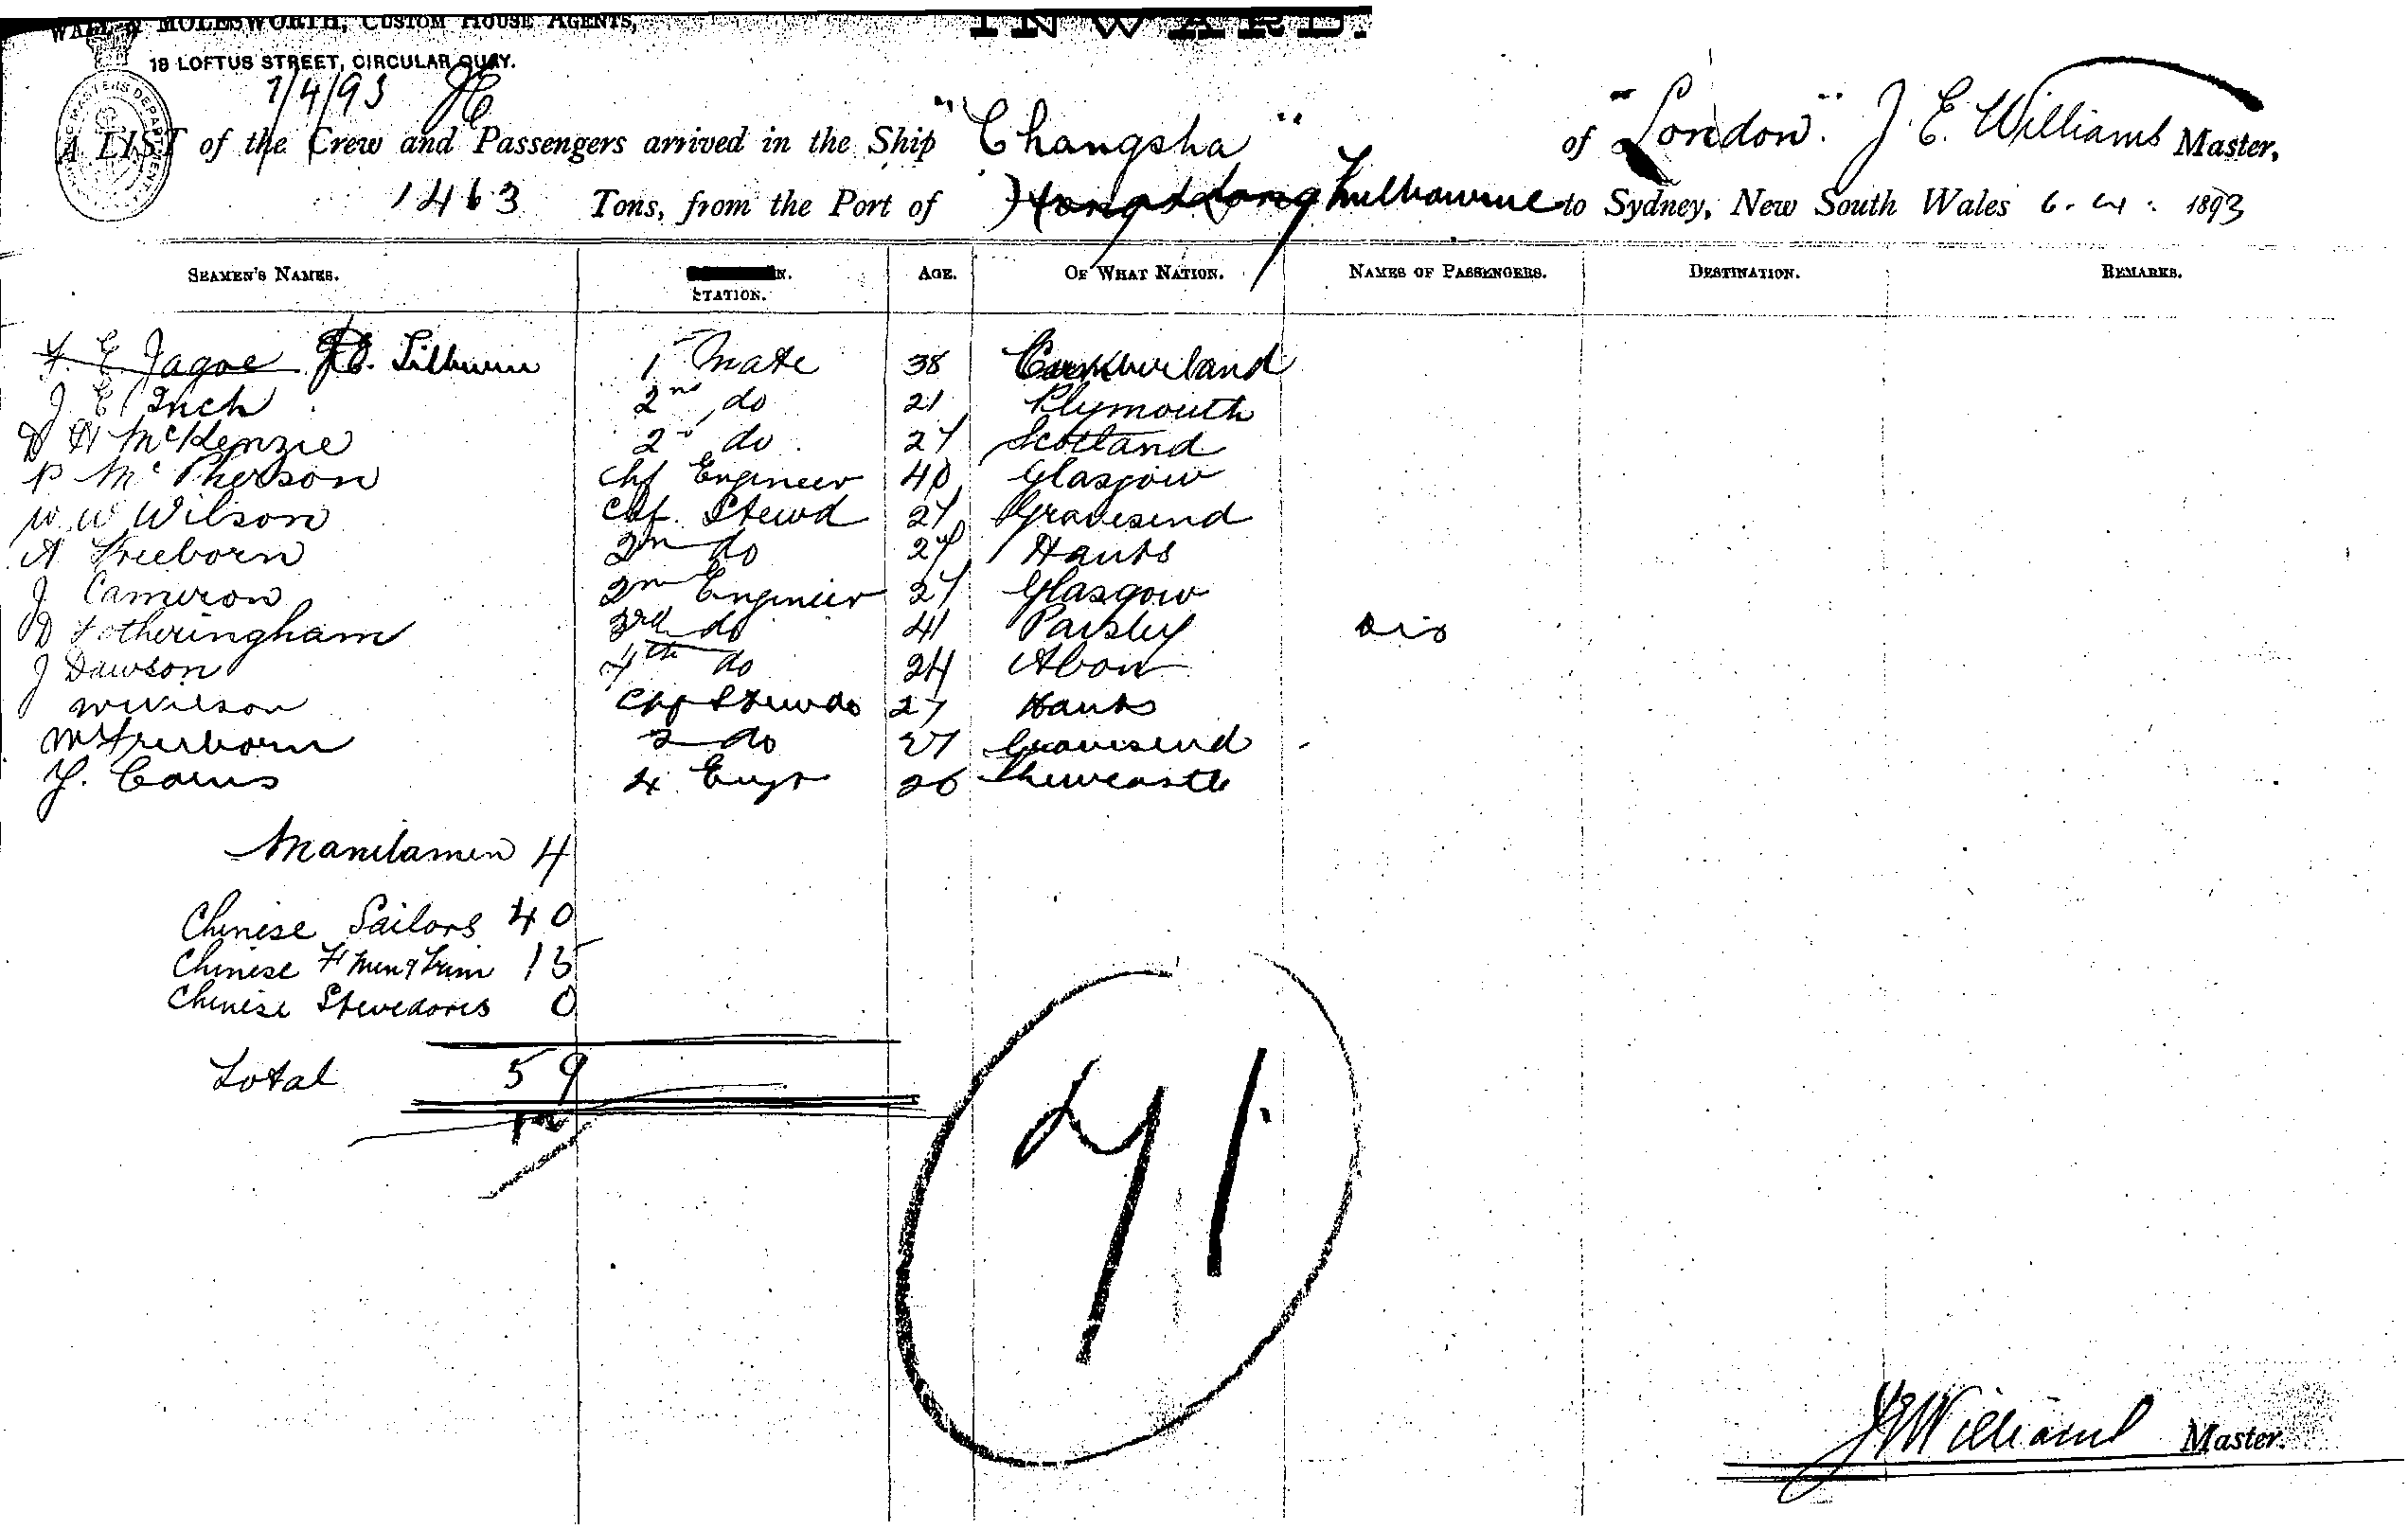 WALL & MOLESWORTH, CUSTOM HOUSE AGENTS,
INWARD.
18 LOFTUS STREET, CIRCULAR QUAY.
7/4/93
A LIST of the Crew and Passengers arrived in the Ship "Changsha" of "London" J. E. Williams Master,
1463 Tons, from the Port of Hong Kong Melbourne to Sydney, New South Wales 6. 4. 1893
SEAMEN'S NAMES. STATION. AGE. OF WHAT NATION. NAMES OF PASSENGERS. DESTINATION. REMARKS.
F. E. Jagoe 1st Mate 38 Cumberland
J E Inch 2nd do 21 Plymouth
D H McKenzie 2nd do 27 Scotland
P McPherson Chf Engineer 40 Glasgow
W W Wilson Chf. Stewd 27 Gravesend
A Freeborn 2n do 27 Hants
J Cameron 2n Engineer 27 Glasgow
D Fotheringham 3rd do 41 Paisley
J Dawson 4th do 24
W Wilson Chf Stewds 27 Hants
M Freeborn 2 do 27 Gravesend
4 Engr 26 Newcastle
Manilamen 4
Chinese Sailors 40
Chinese F'men & Trim 15
Chinese Stevedores 0
Total 59
12
71
J E Williams Master.